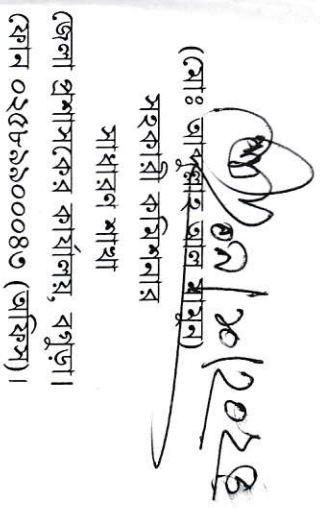 ০৯/১০/২০২৫
(মোঃ আব্দুল্লাহ আল মামুন)
সহকারী কমিশনার
সাধারণ শাখা
জেলা প্রশাসকের কার্যালয়, বগুড়া।
ফোন ০২৫৮৯৯০০০৪৩ (অফিস)।